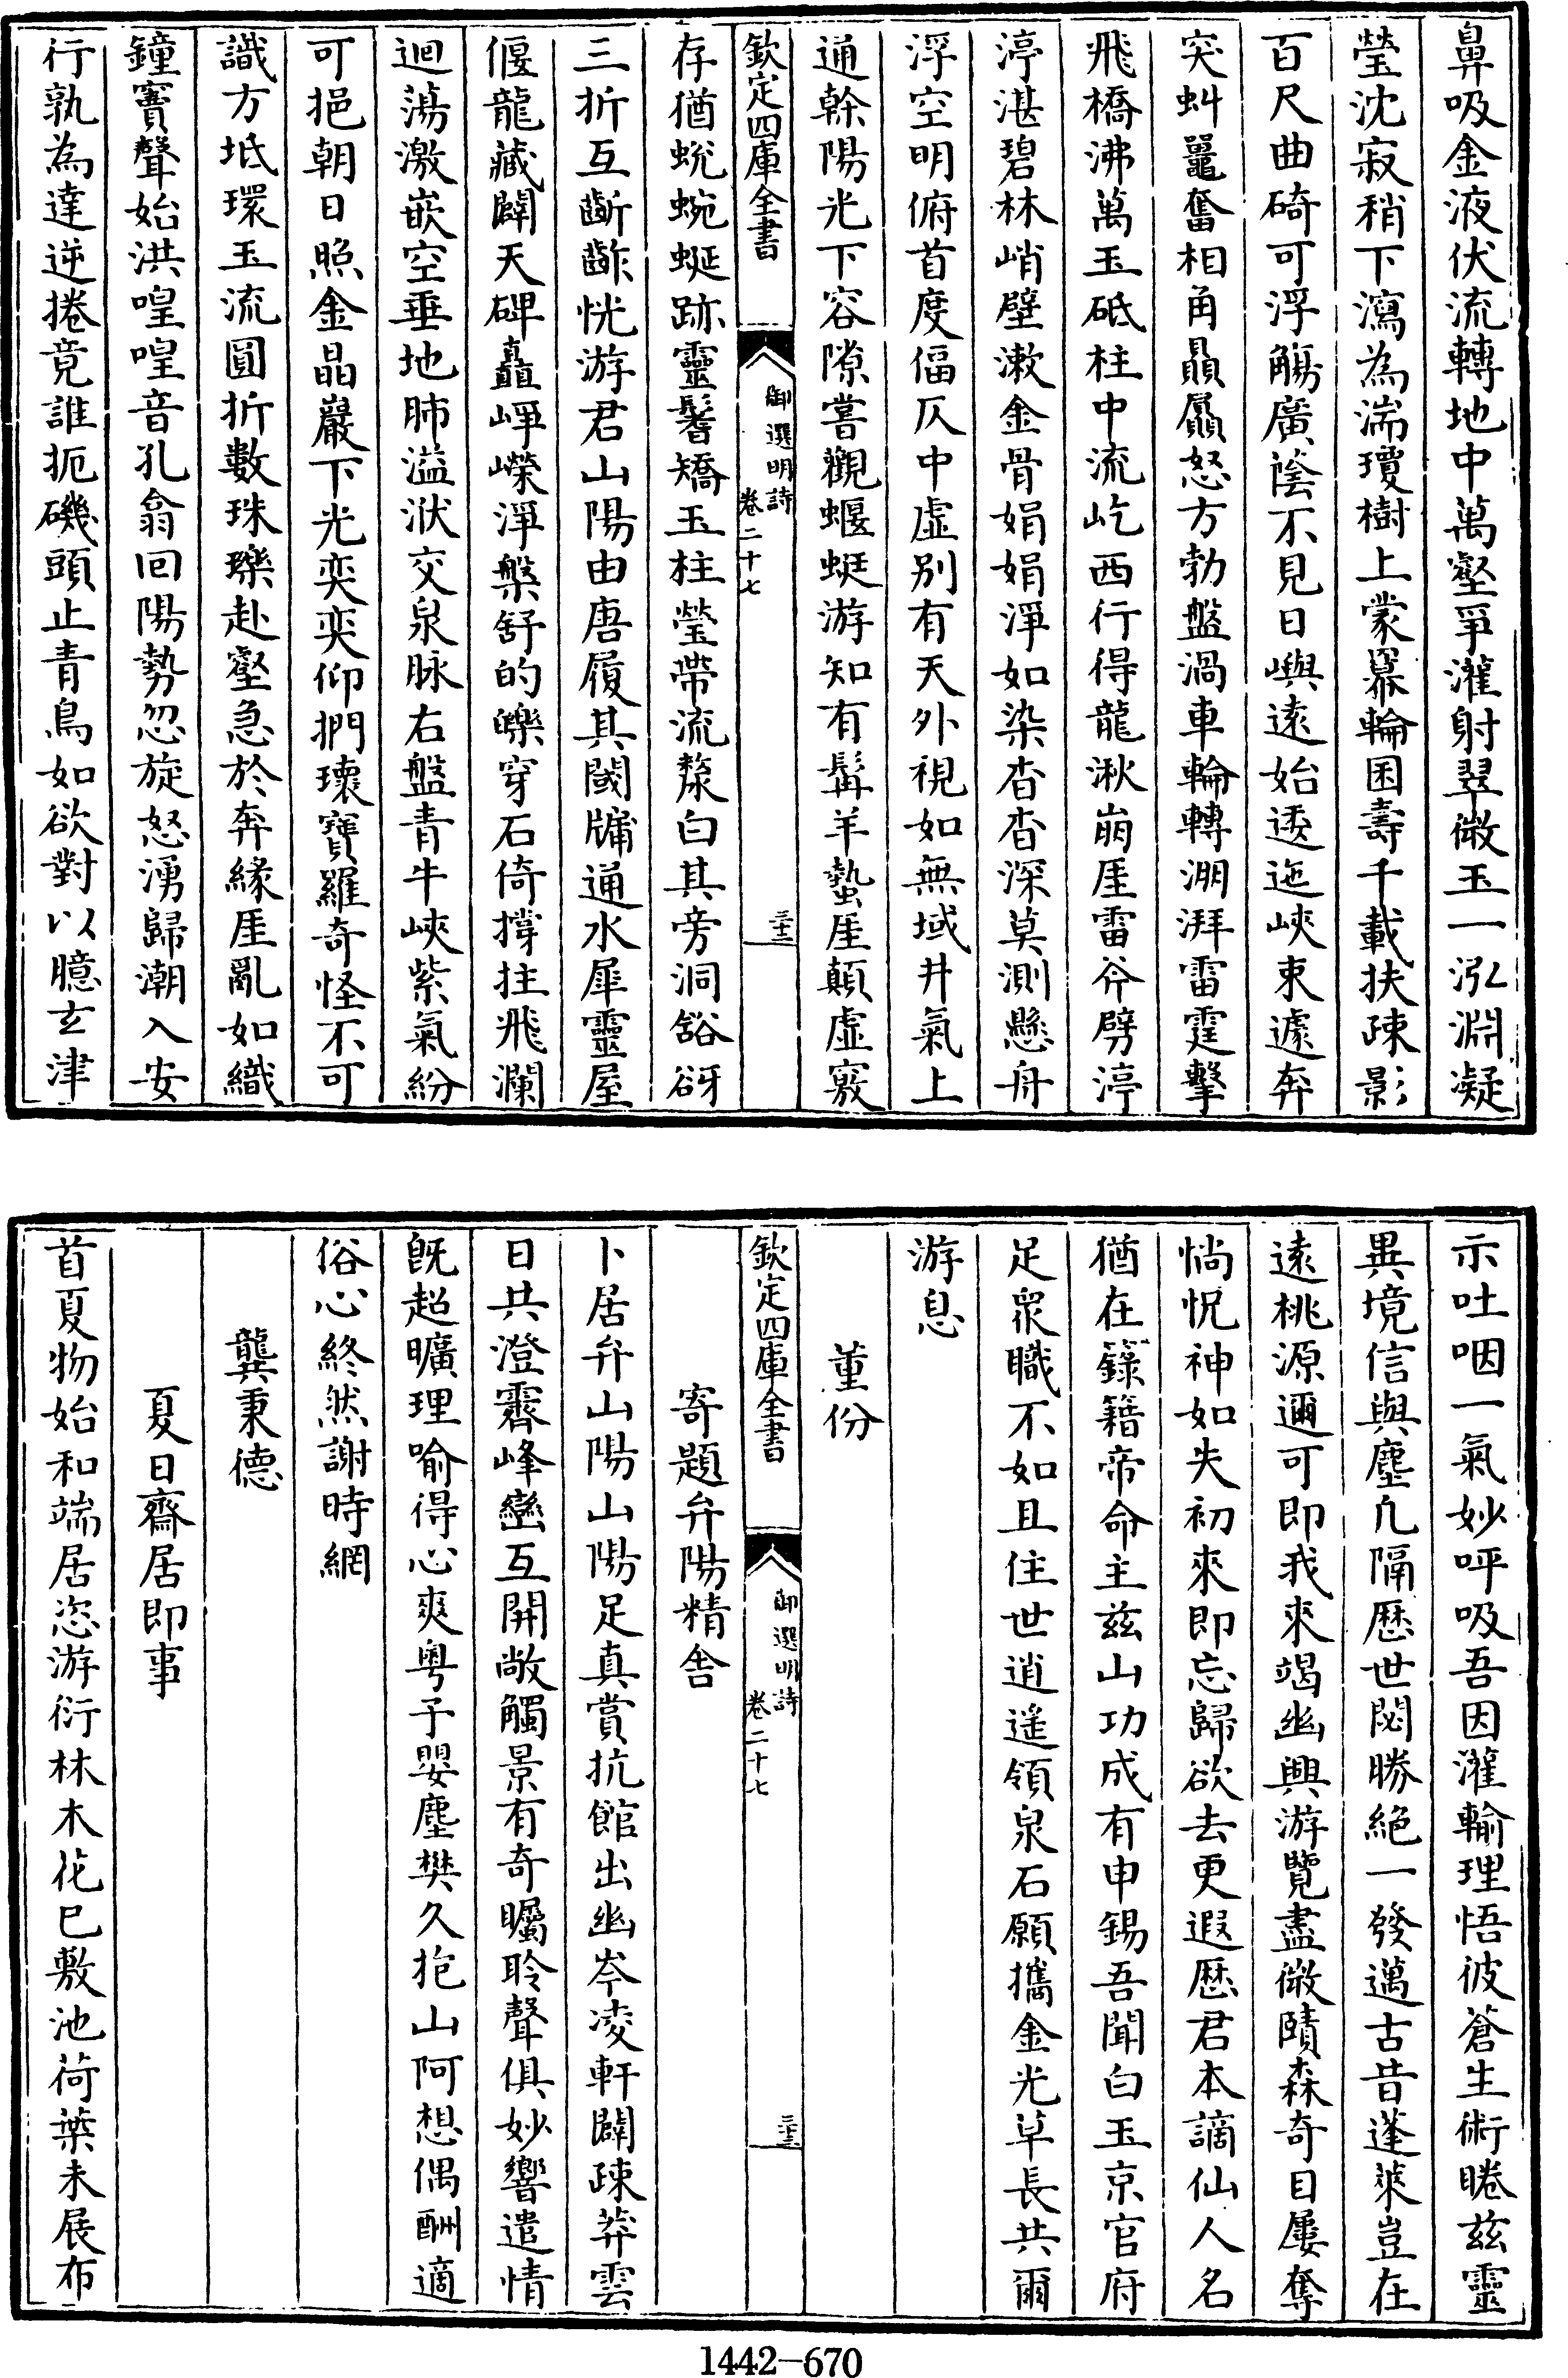 鼻吸金液伏流轉地中萬壑爭灌射翠微玉一泓淵凝
瑩沈寂稍下瀉為湍瓊樹上蒙羃輪囷壽千載扶疎影
百尺曲碕可浮觴廣蔭不見日嶼遠始逶迤峽束遽奔
突虬鼉奮相角贔屭怒方勃盤渦車輪轉淜湃雷霆擊
飛橋沸萬玉砥柱中流屹西行得龍湫崩厓雷斧劈渟
渟湛碧林峭壁漱金骨娟娟淨如染杳杳深莫測懸舟
浮空明俯首度偪仄中虛别有天外視如無域井氣上
通幹陽光下容隙嘗觀蝘蜓游知有髯羊蟄厓顛虛竅
欽定四庫全書
御選明詩
卷二十七
三十二
存猶蛻蜿蜒跡靈鬐矯玉柱瑩帶流漦白其旁洞谽谺
三折互齗齚恍游君山陽由唐履其閾牖通水犀靈屋
偃龍藏闢天碑矗崢嶸淨槃舒的皪穿石倚撐拄飛瀾
迴蕩激嵌空垂地肺溢洑交泉脉右盤青牛峽紫氣紛
可挹朝日照金晶巖下光奕奕仰捫瓌寶羅奇怪不可
識方坻環玉流圓折數珠瓅赴壑急於奔緣厓亂如織
鐘竇聲始洪喤喤音孔翕囘陽勢忽旋怒湧歸潮入安
行孰為達逆捲竟誰扼磯頭止青鳥如欲對以臆玄津
示吐咽一氣妙呼吸吾因灌輸理悟彼蒼生術睠茲靈
異境信與塵凡隔歷世閟勝絶一發邁古昔蓬萊豈在
遠桃源邇可即我來竭幽興游覽盡微賾森奇目屢奪
惝怳神如失初來即忘歸欲去更遐歷君本謫仙人名
猶在籙籍帝命主茲山功成有申錫吾聞白玉京官府
足衆職不如且住世逍遥領泉石願攜金光草長共爾
游息
董份
欽定四庫全書
御選明詩
卷二十七
三十三
寄題弁陽精舍
卜居弁山陽山陽足真賞抗館出幽岑凌軒闢疎莽雲
日共澄霽峰巒互開敞觸景有奇矚聆聲俱妙響遣情
旣超曠理喻得心爽粤予嬰塵樊久抱山阿想偶酬適
俗心終然謝時網
龔秉德
夏日齋居即事
首夏物始和端居恣游衍林木花已敷池荷葉未展布
1442-670